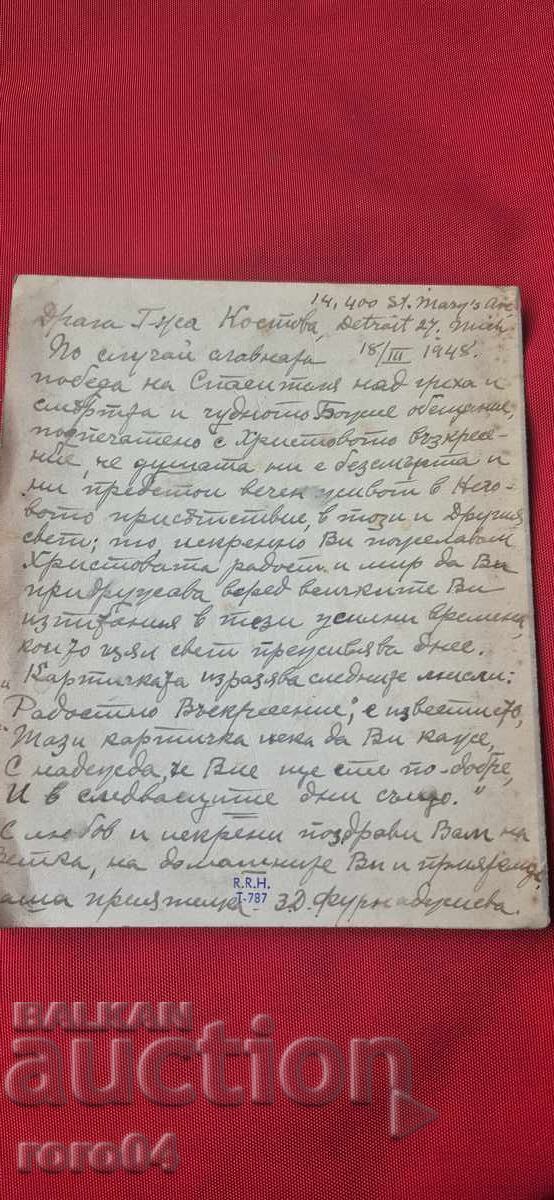 14,400 St. Mary's Ave
Драга Гуса Костова, Detroit 27, Mich.
По случай славната 18/III 1948.
победа на Спасителя над греха и
смъртта и чудното Божие обещание,
подпечатено с Христовото възкресе-
ние, че душата ни е безсмъртна и
ни предстои вечен живот в Него-
вото присътствие, в този и другия
свет; то искренно Ви пожелавам
Христовата радост и мир да Ви
придружава всред всичките Ви
изпитания в тези усилни времена,
които цял свет преживява днес.
Картичката изразява следните мисли:
"Радостно Въскресение", е известието,
"Тази картичка нека да Ви каже,
С надежда, че Вие ще сте по-добре,
И в следващите дни също."
С любов и искрени поздрави Вам на
на домашните Ви и
приятелка З.Д. Фурнаджиева.
R.R.H.
T-787
BALKAN
auction
roro04